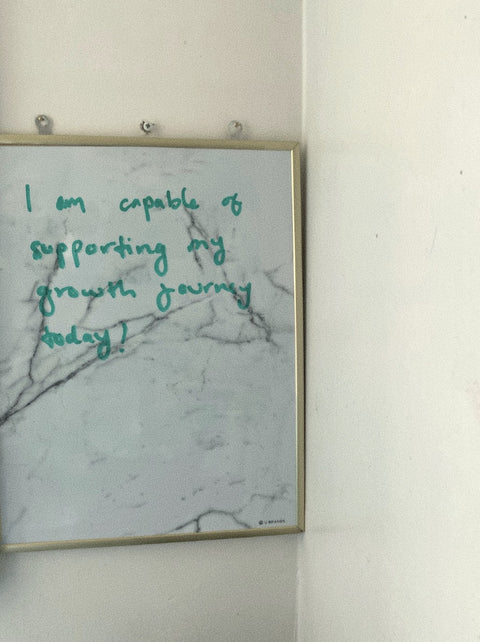 I am capable of
supporting my
growth journey
today!
U BRANDS